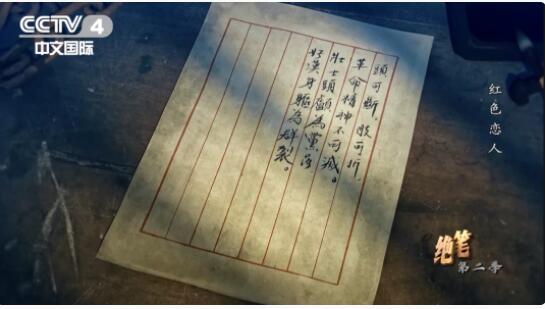 CCTV 4
中文国际
頭可斷，肢可折，
革命精神不可滅。
壯士頭顱為黨落
好漢身軀為群裂。
红色恋人
绝笔
第二季